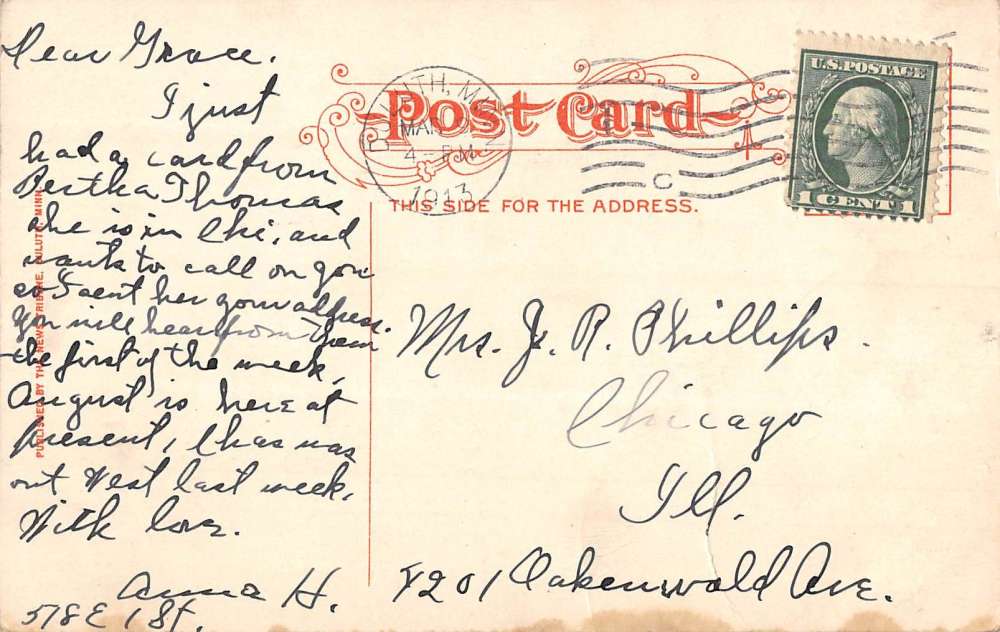 Dear Grace.
I just
had a card from
Bertha Thomas
she is in Chi, and
wants to call on you
so I sent her your address.
You will hear from them
the first of the week,
August is here at
present, Chas was
out West last week,
With love.
Anna H.
578 E 1 St.
PUBLISHED BY THE NEWS TRIBUNE, DULUTH, MINN.
Post Card
THIS SIDE FOR THE ADDRESS.
DULUTH, MINN
MAR
4 - PM
1913
C
U.S. POSTAGE
1 CENT 1
Mrs. J. R. Phillips.
Chicago
Ill.
4201 Oakenwald Ave.